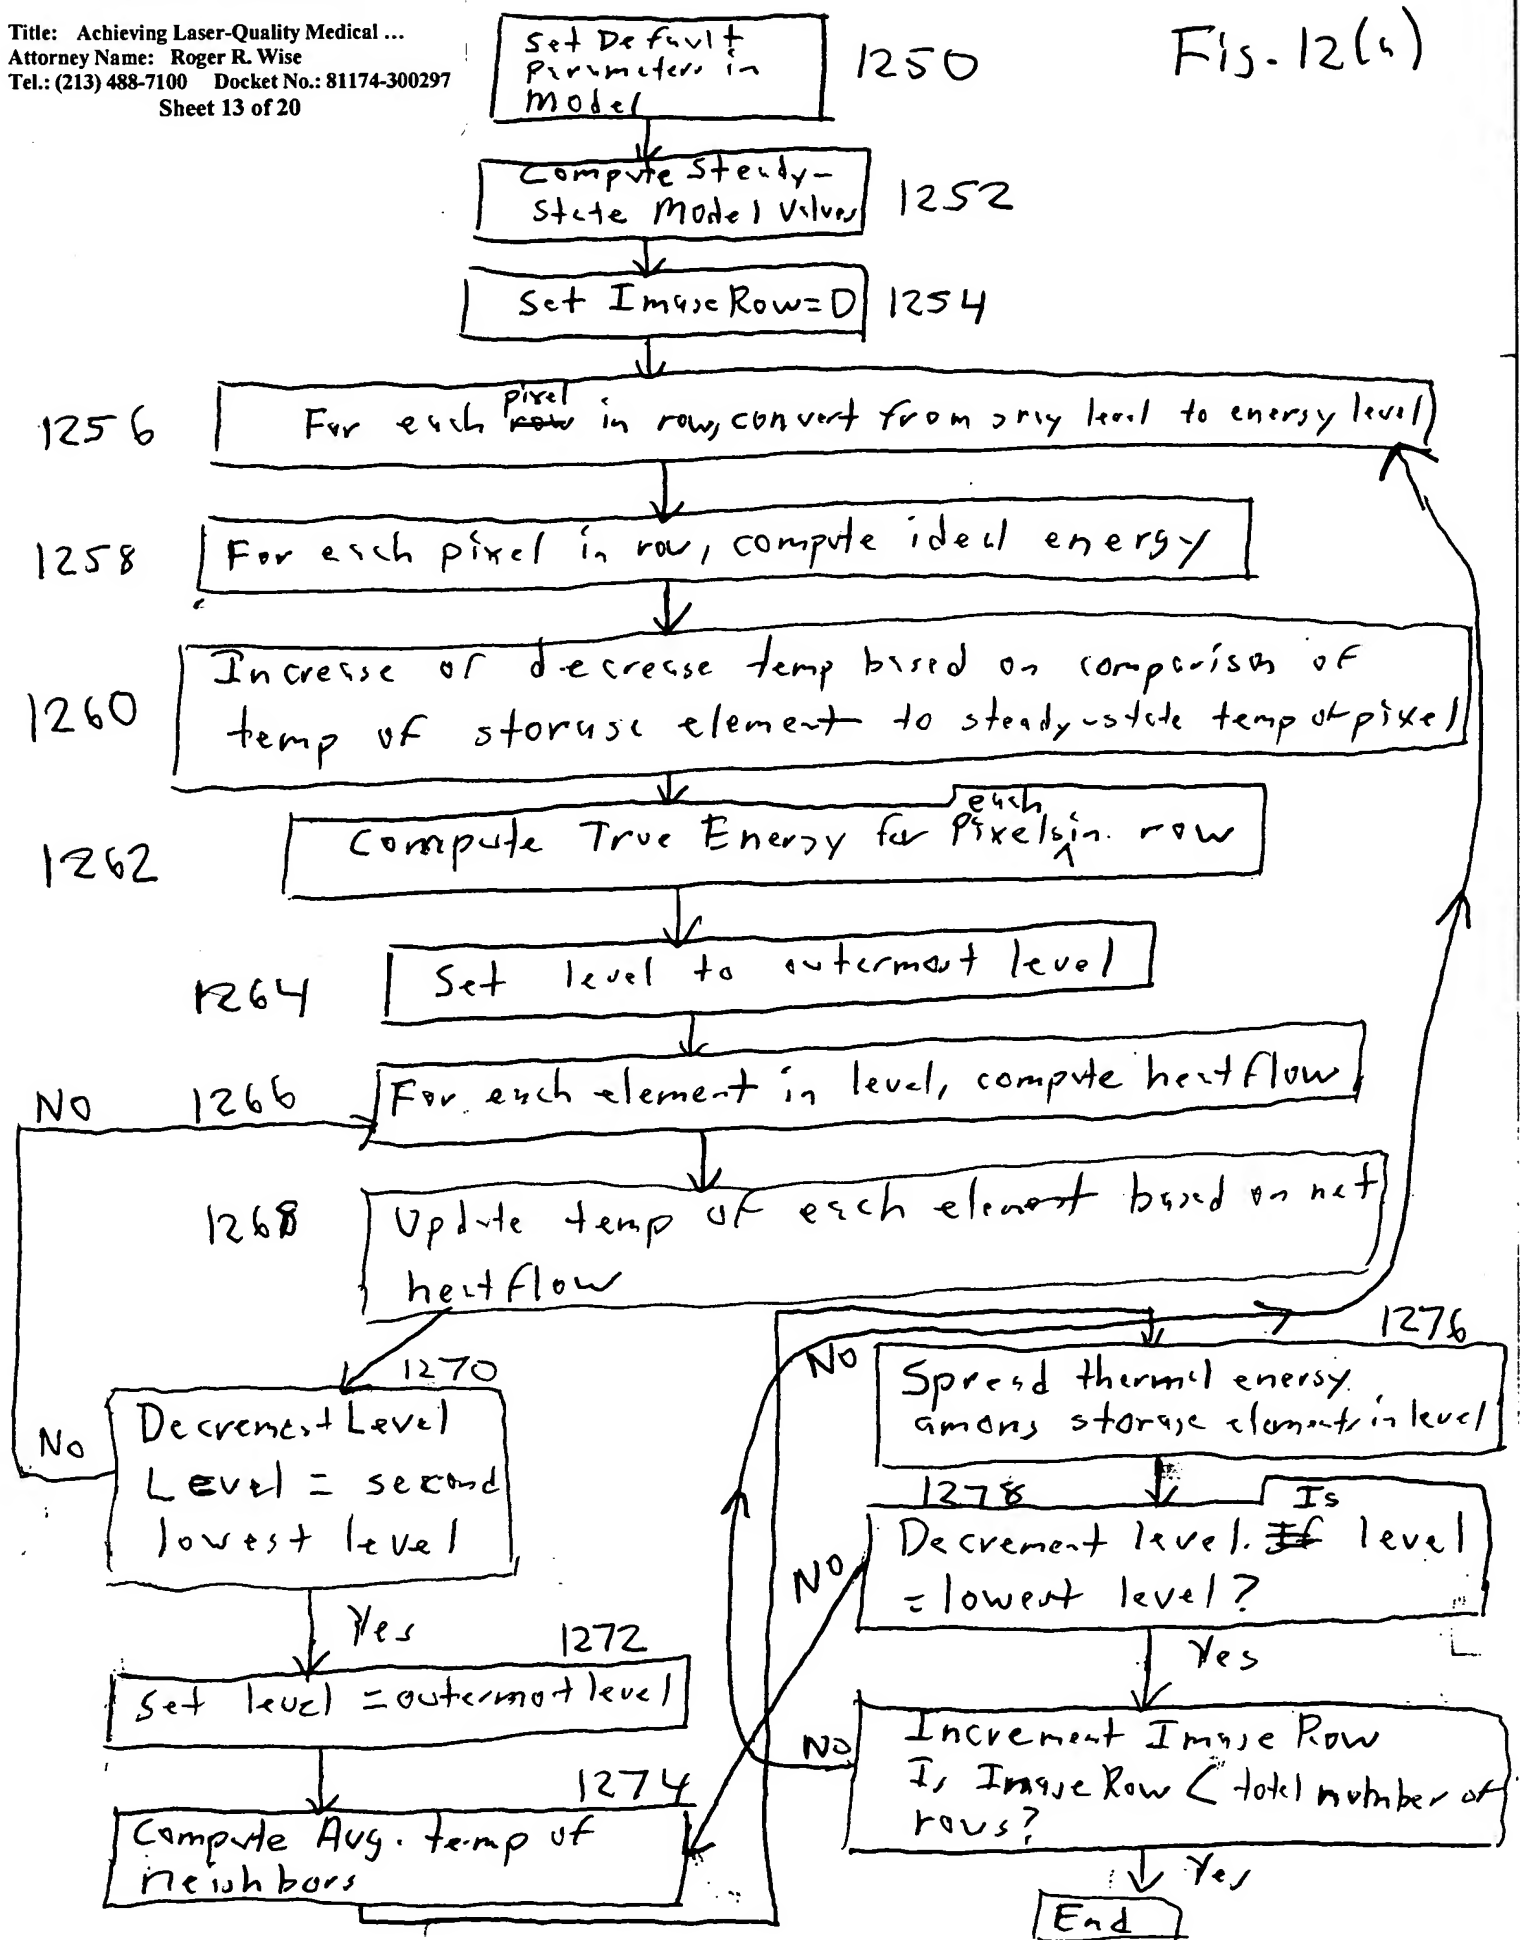 Title: Achieving Laser-Quality Medical ...
Attorney Name: Roger R. Wise
Tel.: (213) 488-7100 Docket No.: 81174-300297
Sheet 13 of 20
Fig. 12(a)
Set Default
Parameters in
Model
1250
Compute Steady-
State Model Values
1252
Set Image Row=0
1254
1256
pixel
For each row in row, convert from gray level to energy level
1258
For each pixel in row, compute ideal energy
1260
Increase or decrease temp based on comparison of
temp of storage element to steady-state temp of pixel
1262
each
Compute True Energy for Pixels in row
1264
Set level to outermost level
NO
1266
For each element in level, compute heat flow
1268
Update temp of each element based on net
heat flow
1270
No
Decrement Level
Level = second
lowest level
Yes
1272
Set level = outermost level
1274
Compute Avg. temp of
neighbors
NO
1276
Spread thermal energy
among storage elements in level
1278
Is
NO
Decrement level. If level
= lowest level?
Yes
NO
Increment Image Row
Is Image Row < total number of
rows?
Yes
End